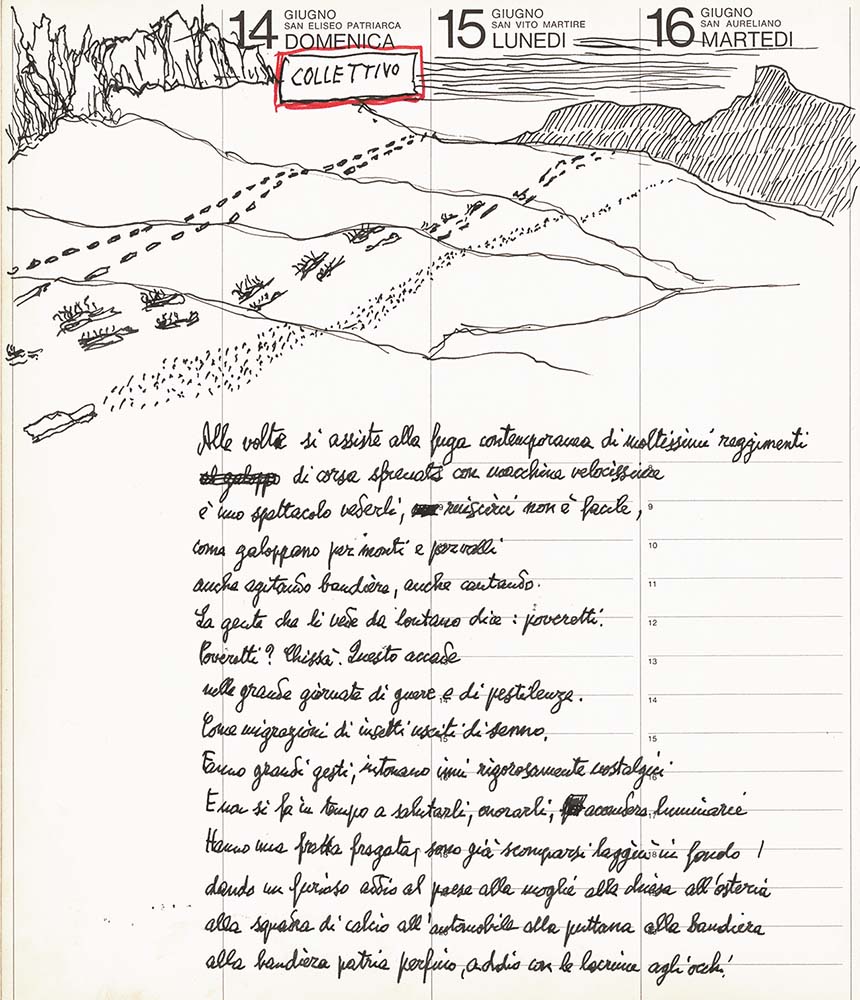 14 GIUGNO
SAN ELISEO PATRIARCA
DOMENICA
15 GIUGNO
SAN VITO MARTIRE
LUNEDI
16 GIUGNO
SAN AURELIANO
MARTEDI
COLLETTIVO
Alle volte si assiste alla fuga contemporanea di moltissimi reggimenti
al galoppo di corsa sfrenata con macchina velocissima
è uno spettacolo vederli, riuscirci non è facile,
9
come galoppano per monti e per valli
10
anche agitando bandiere, anche cantando.
11
La gente che li vede da lontano dice : poveretti.
12
Poveretti? Chissà. Questo accade
13
nelle grande giornate di guerre e di pestilenze.
14
14
Come migrazioni di insetti usciti di senno.
15
15
Fanno grandi gesti, intonano inni rigorosamente nostalgici
16
E non si fa in tempo a salutarli, onorarli, accendere luminarie
17
Hanno una fretta fregata, sono già scomparsi laggiù in fondo !
18
18
dando un furioso addio al paese alla moglie alla chiesa all'osteria
alla squadra di calcio all'automobile alla puttana alla bandiera
alla bandiera patria perfino, addio con le lacrime agli occhi!